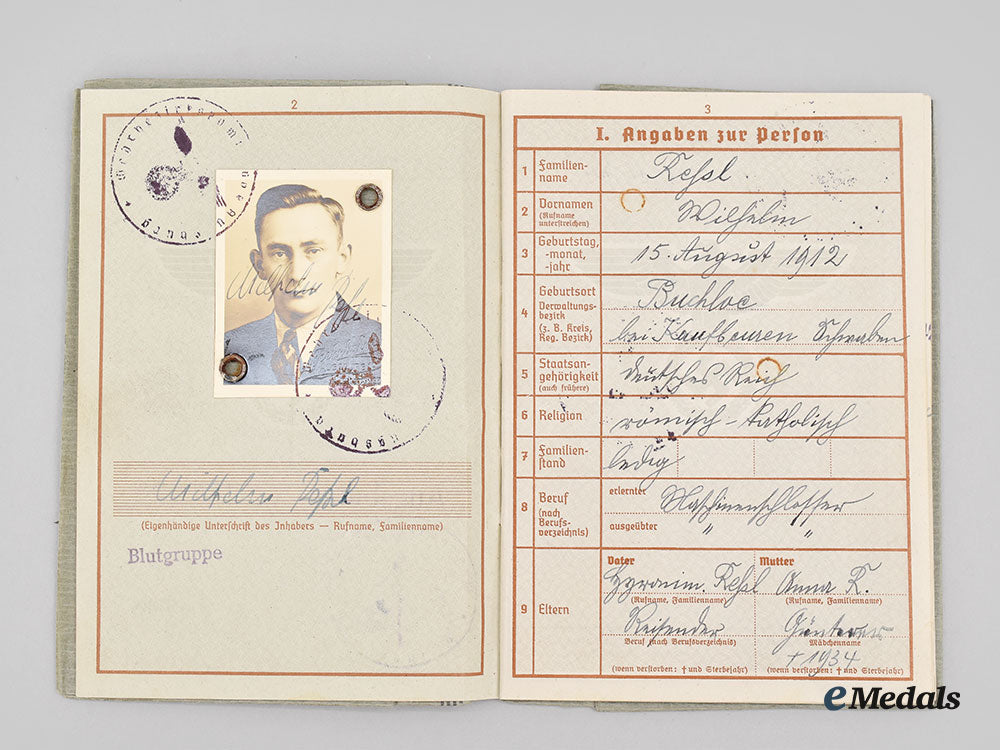 2
Wilhelm
(Eigenhändige Unterschrift des Inhabers — Rufname, Familienname)
Blutgruppe
3
I. Angaben zur Person
1 Familien-
name
2 Vornamen
(Rufname
unterstreichen)
Wilhelm
3 Geburtstag,
-monat,
-jahr
15. August 1912
4 Geburtsort
Verwaltungs-
bezirk
(z. B. Kreis,
Reg. Bezirk)
Buchloe
bei Kaufbeuren Schwaben
5 Staatsan-
gehörigkeit
(auch frühere)
deutsches Reich
6 Religion
römisch-katholisch
7 Familien-
stand
ledig
8 Beruf
(nach
Berufs-
verzeichnis)
erlernter Maschinenschlosser
ausgeübter " "
9 Eltern
Vater Mutter
Anna
(Rufname, Familienname) (Rufname, Familienname)
Reisender
Beruf (nach Berufsverzeichnis) Mädchenname
† 1934
(wenn verstorben: † und Sterbejahr) (wenn verstorben: † und Sterbejahr)
eMedals